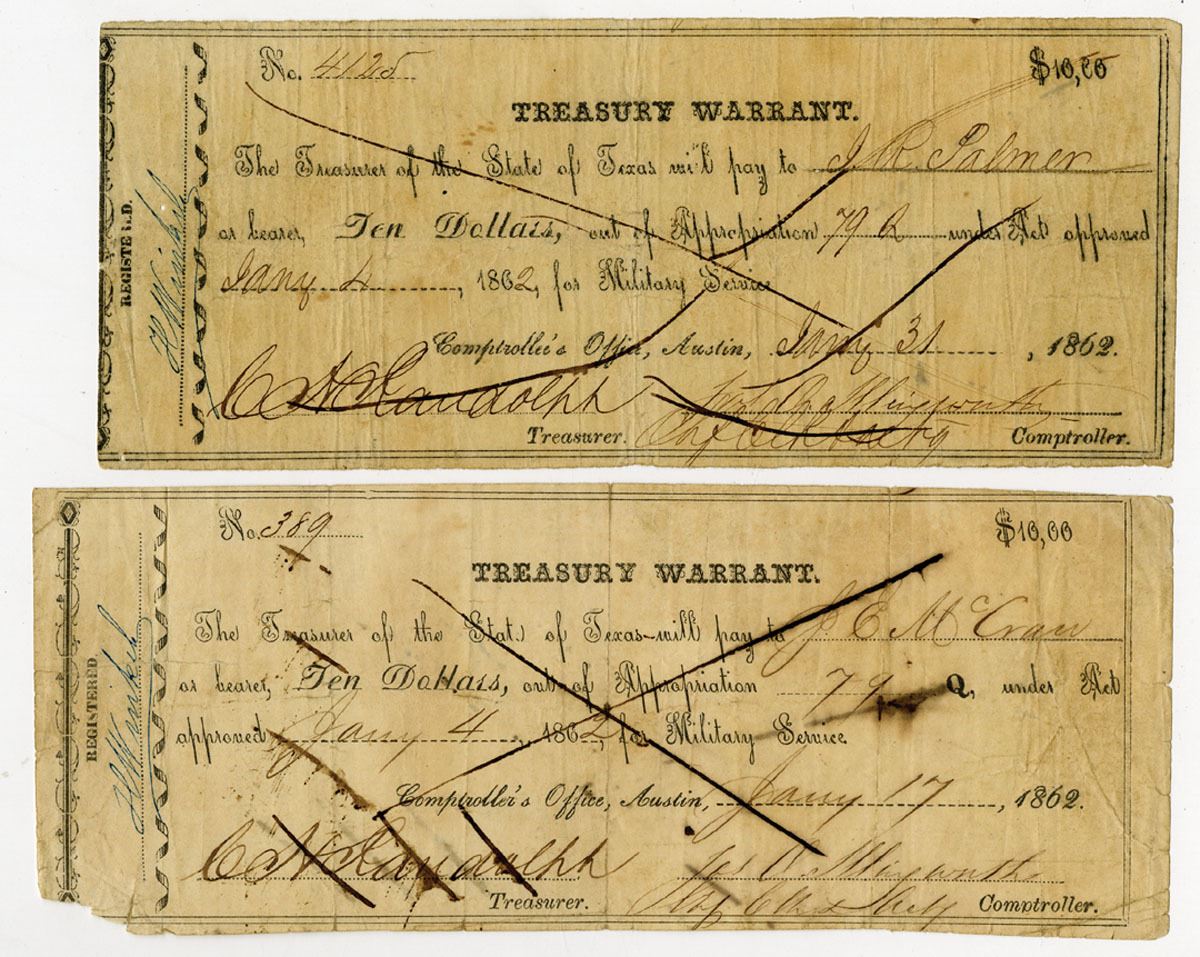 No. 4125 $10,00
TREASURY WARRANT.
The Treasurer of the State of Texas will pay to J. R. Palmer
or bearer, Ten Dollars, out of Appropriation 79 Q under Act approved
Jany 4, 1862, for Military Service
Comptroller's Office, Austin, Jany 31, 1862.
C H Randolph
Treasurer. Comptroller.
REGISTERED.
No. 389 $10,00
TREASURY WARRANT.
The Treasurer of the State of Texas will pay to J E McCraw
or bearer, Ten Dollars, out of Appropriation 79 Q, under Act
approved Jany 4, 1862, for Military Service
Comptroller's Office, Austin, Jany 17, 1862.
C H Randolph
Treasurer. Comptroller.
REGISTERED